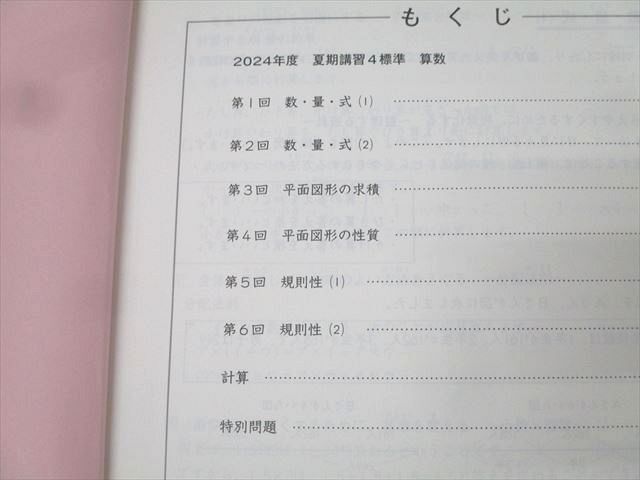 もくじ
2024年度 夏期講習4標準 算数
第1回 数・量・式(1)
第2回 数・量・式(2)
第3回 平面図形の求積
第4回 平面図形の性質
第5回 規則性(1)
第6回 規則性(2)
計算
特別問題